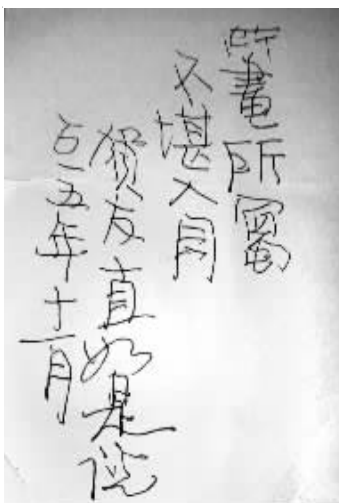 所畫所寫
不堪入目
賀友直如是说
乙五年十一月